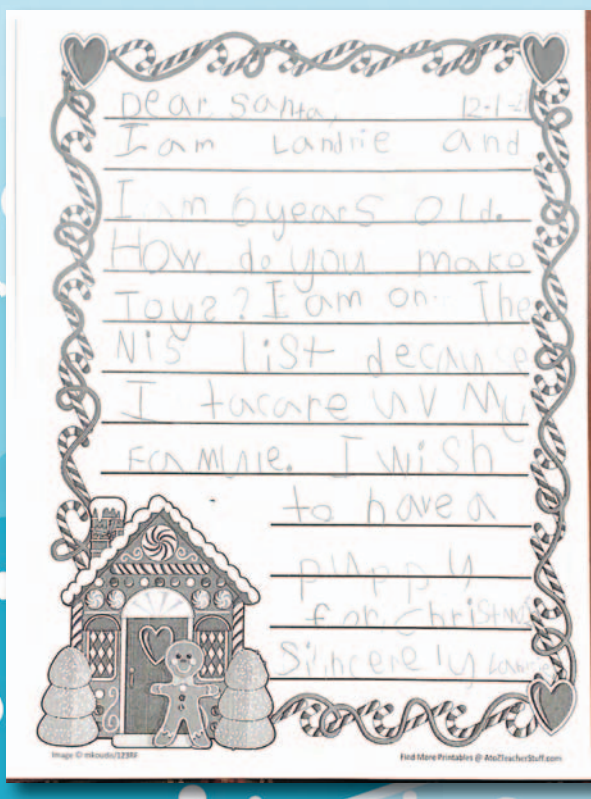 Dear Santa, 12-1-21
I am Landrie and
I am 6 years old.
How do you make
Toys? I am on The
Nis list decause
I tacare uv My
Famulie. I wish
to have a
puppy
for Christmas
Sincerely Landrie
Image © mkoudis/123RF
Find More Printables @ AtoZTeacherStuff.com